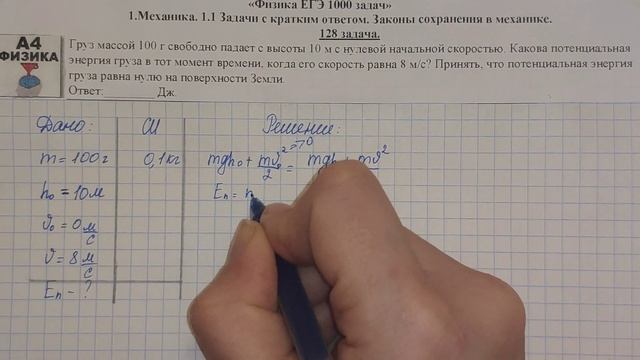 «Физика ЕГЭ 1000 задач»
1.Механика. 1.1 Задачи с кратким ответом. Законы сохранения в механике.
128 задача.
А4
ФИЗИКА
Груз массой 100 г свободно падает с высоты 10 м с нулевой начальной скоростью. Какова потенциальная
энергия груза в тот момент времени, когда его скорость равна 8 м/с? Принять, что потенциальная энергия
груза равна нулю на поверхности Земли.
Ответ:________ Дж.
Дано:
СИ
Решение:
m = 100г
0,1кг
mgh₀ + mϑ₀²/2 →0 = mgh + mϑ²
h₀ = 10м
Eп = m
ϑ₀ = 0 м/с
ϑ = 8 м/с
Eп - ?